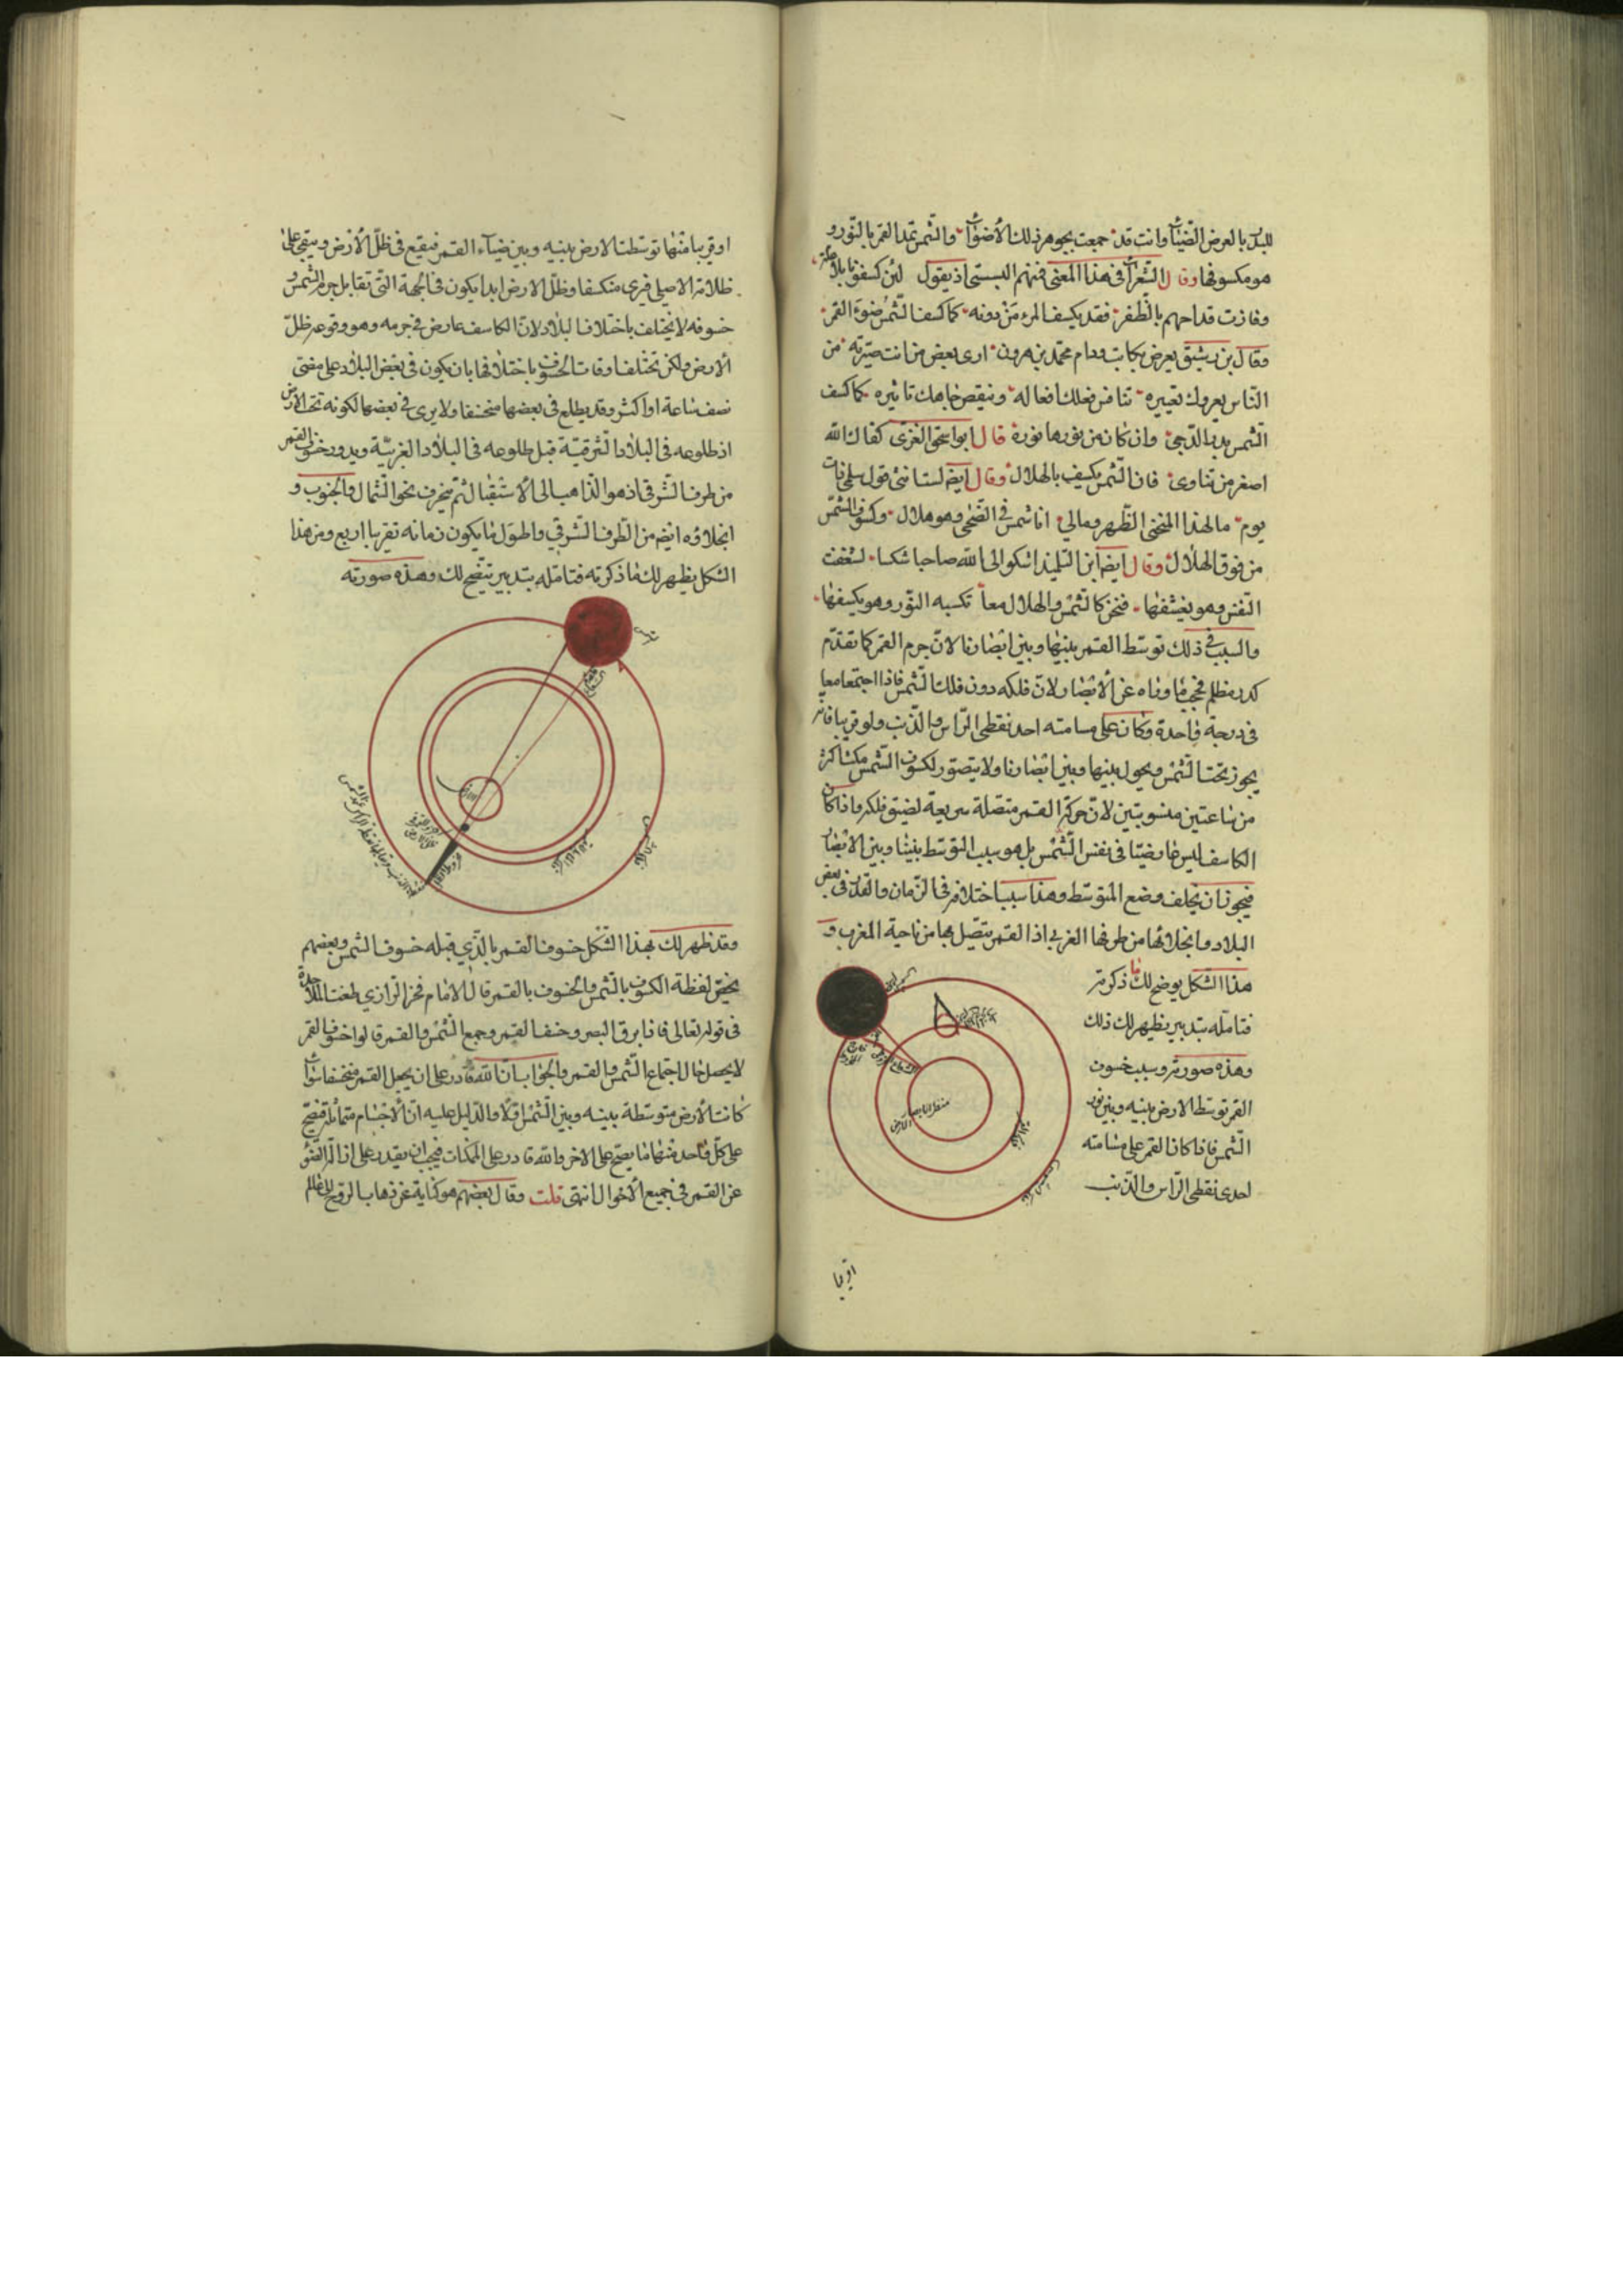 للبدر بالعرض الضياء وانت قد جمعت بجوهر ذلك الأضواء والشمس تمد القمر بالنور و
هو مكسوفها وقال الشعراء في هذا المعنى فمنهم البستي اذ يقول لئن كسفونا بلا علة
وفازت قداحهم بالظفر فقد يكسف المرء من دونه كما كسف الشمس ضوء القمر
وقال بن رشيق يعرض بكاتب محمد بن هرون ارى بعض من انت صيرته من
الناس يعروك تغييره تنافس فعلك افعاله وينقص جاهك تاثيره كما كسف
الشمس بدر الدجى وان كان من نورها نوره قال ابو اسحق الغزى كفاك الله
اصغر من تناوى فان الشمس تكسف بالهلال وقال ايضا لست انسى قول سلمى ذات
يوم ما لهذا المنحنى الظهر ومالي انا شمس في الضحى وهو هلال وكسوف الشمس
من فوق الهلال وقال ايضا ابن التلميذ اشكو الى الله صاحبا شكسا تسعفه
النفس وهو يعسفها فنحن كالشمس والهلال معا تكسبه النور وهو يكسفها
والسبب في ذلك توسط القمر بينها وبين ابصارنا لان جرم القمر كما تقدم
كدر مظلم فيحجب ما وراه عن الابصار ولان فلكه دون فلك الشمس فاذا اجتمعا معا
في درجة واحدة وكان على مسامتة احد نقطتي الراس والذنب ولو قريبا فانه
يجوز تحت الشمس ويحول بينها وبين ابصارنا ولا يتصور لكسوف الشمس مكث اكثر
من ساعتين منسوبتين لان حركة القمر متصلة سريعة لضيق فلكه واذا كان
الكاسف ليس عارضيا في نفس الشمس بل هو بسبب التوسط بينها وبين الابصار
فيجوز ان يختلف وضع المتوسط وهذا سبب اختلافه في الزمان والقدر في بعض
البلاد وانجلائها من طرفها الغربي اذ القمر يتصل بها من ناحية المغرب و
هذا الشكل يوضح لك ما ذكرته
فتامله بتدبير يظهر لك ذلك
وهذه صورته وسبب خسوف
القمر توسط الارض بينه وبين نور
الشمس فاذا كان القمر على مسامتة
احدى نقطتي الراس والذنب
او قريبا
او قريبا منها توسطت الارض بينه وبين ضياء القمر فيقع في ظل الأرض ويبقى على
ظلامه الاصلي فيرى منكسفا وظل الارض ابدا يكون في الجهة التي تقابل جرم الشمس و
خسوفه لا يختلف باختلاف البلاد لان الكاسف عارض في جرمه وهو وقوعه ظل
الأرض ولكن تختلف اوقات الخسوف باختلافها بان يكون في بعض البلاد على مضى
نصف ساعة او اكثر وقد يطلع في بعضها منخسفا ولا يرى في بعضها لكونه تحت الارض
اذ طلوعه في البلاد الشرقية قبل طلوعه في البلاد الغربية ويدور خسوف القمر
من طرف الشرقي اذ هو الذاهب الى الاستقبال ثم ينحرف نحو الشمال والجنوب و
انجلاؤه ايضا من الطرف الشرقي واطول ما يكون زمانه تقريبا اربع ومن هذا
الشكل يظهر لك ما ذكرته فتامله بتدبير يتضح لك وهذه صورته
شمس
وقد ظهر لك بهذا الشكل خسوف القمر بالذي قبله خسوف الشمس وبعضهم
يخص لفظة الكسوف بالشمس والخسوف بالقمر قال الامام فخر الرازي طعنت الملاحدة
في قوله تعالى فاذا برق البصر وخسف القمر وجمع الشمس والقمر قالوا خسوف القمر
لا يحصل حال اجتماع الشمس والقمر والجواب ان الله قادر على ان يجعل القمر منخسفا سواء
كانت الأرض متوسطة بينه وبين الشمس او لا والدليل عليه ان الأجسام متماثلة فيصح
على كل واحد منها ما يصح على الاخر والله قادر على الممكنات فيجب ان يقدر على ازالة الضوء
عن القمر في جميع الأحوال انتهى قلت وقال بعضهم هو كناية عن ذهاب الروح الى عالم